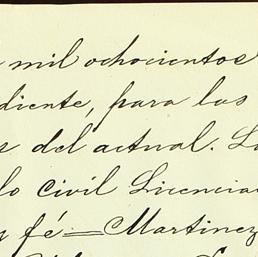 mil ochocientos
diente, para las
s del actual. La
lo Civil Licencia
y fé = Martinez